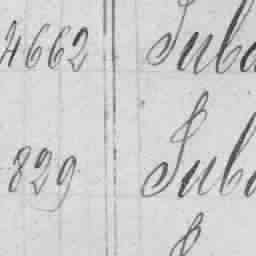 4662 Suba
829 Suba